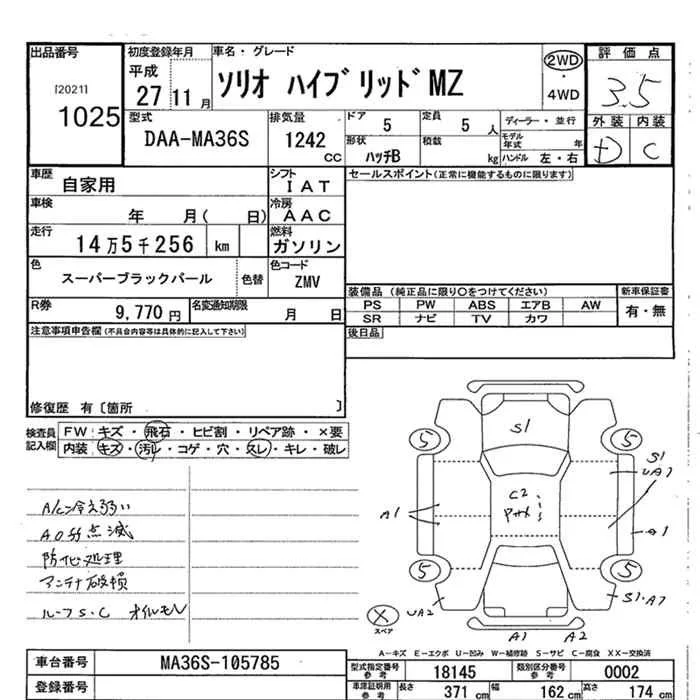 出品番号 初度登録年月 車名・グレード 評価点
[2021] 1025
平成 27 11月 ソリオ ハイブリッドMZ 2WD・4WD 3.5
型式 DAA-MA36S 排気量 1242 CC
ドア 5 定員 5人 ディーラー・並行 外装 内装
形状 ハッチB 積載 kg モデル年式 年 ハンドル 左・右 C
車歴 自家用 シフト IAT セールスポイント(正常に機能するものに限ります)
車検 年 月( 日) 冷房 AAC
走行 14万5千256 km 燃料 ガソリン
色 スーパーブラックパール 色替 色コード ZMV
装備品 (純正品に限り〇をつけてください) 新車保証書
PS PW ABS エアB AW 有・無
SR ナビ TV カワ
R券 9,770円 名変通知期限 月 日
後日品
注意事項申告欄(不具合内容等は具体的に記入して下さい)
修復歴 有〔箇所 〕
検査員記入欄
FW キズ・飛石・ヒビ割・リペア跡・×要
内装 キズ・汚レ・コゲ・穴・スレ・キレ・破レ
A/C冷え弱い
防化処理
アンテナ破損
ルーフS・C オイルモレ
S1
5 5
S1
UA1
C2
A1
A1
5 5
UA2
S1・A7
× スペア
A1 A2
A-キズ E-エクボ U-凹み W-補修跡 S-サビ C-腐食 XX-交換済
車台番号 MA36S-105785
型式指定番号参考 18145 類別区分番号参考 0002
登録番号
車庫証明用参考 長さ 371 cm 幅 162 cm 高さ 174 cm